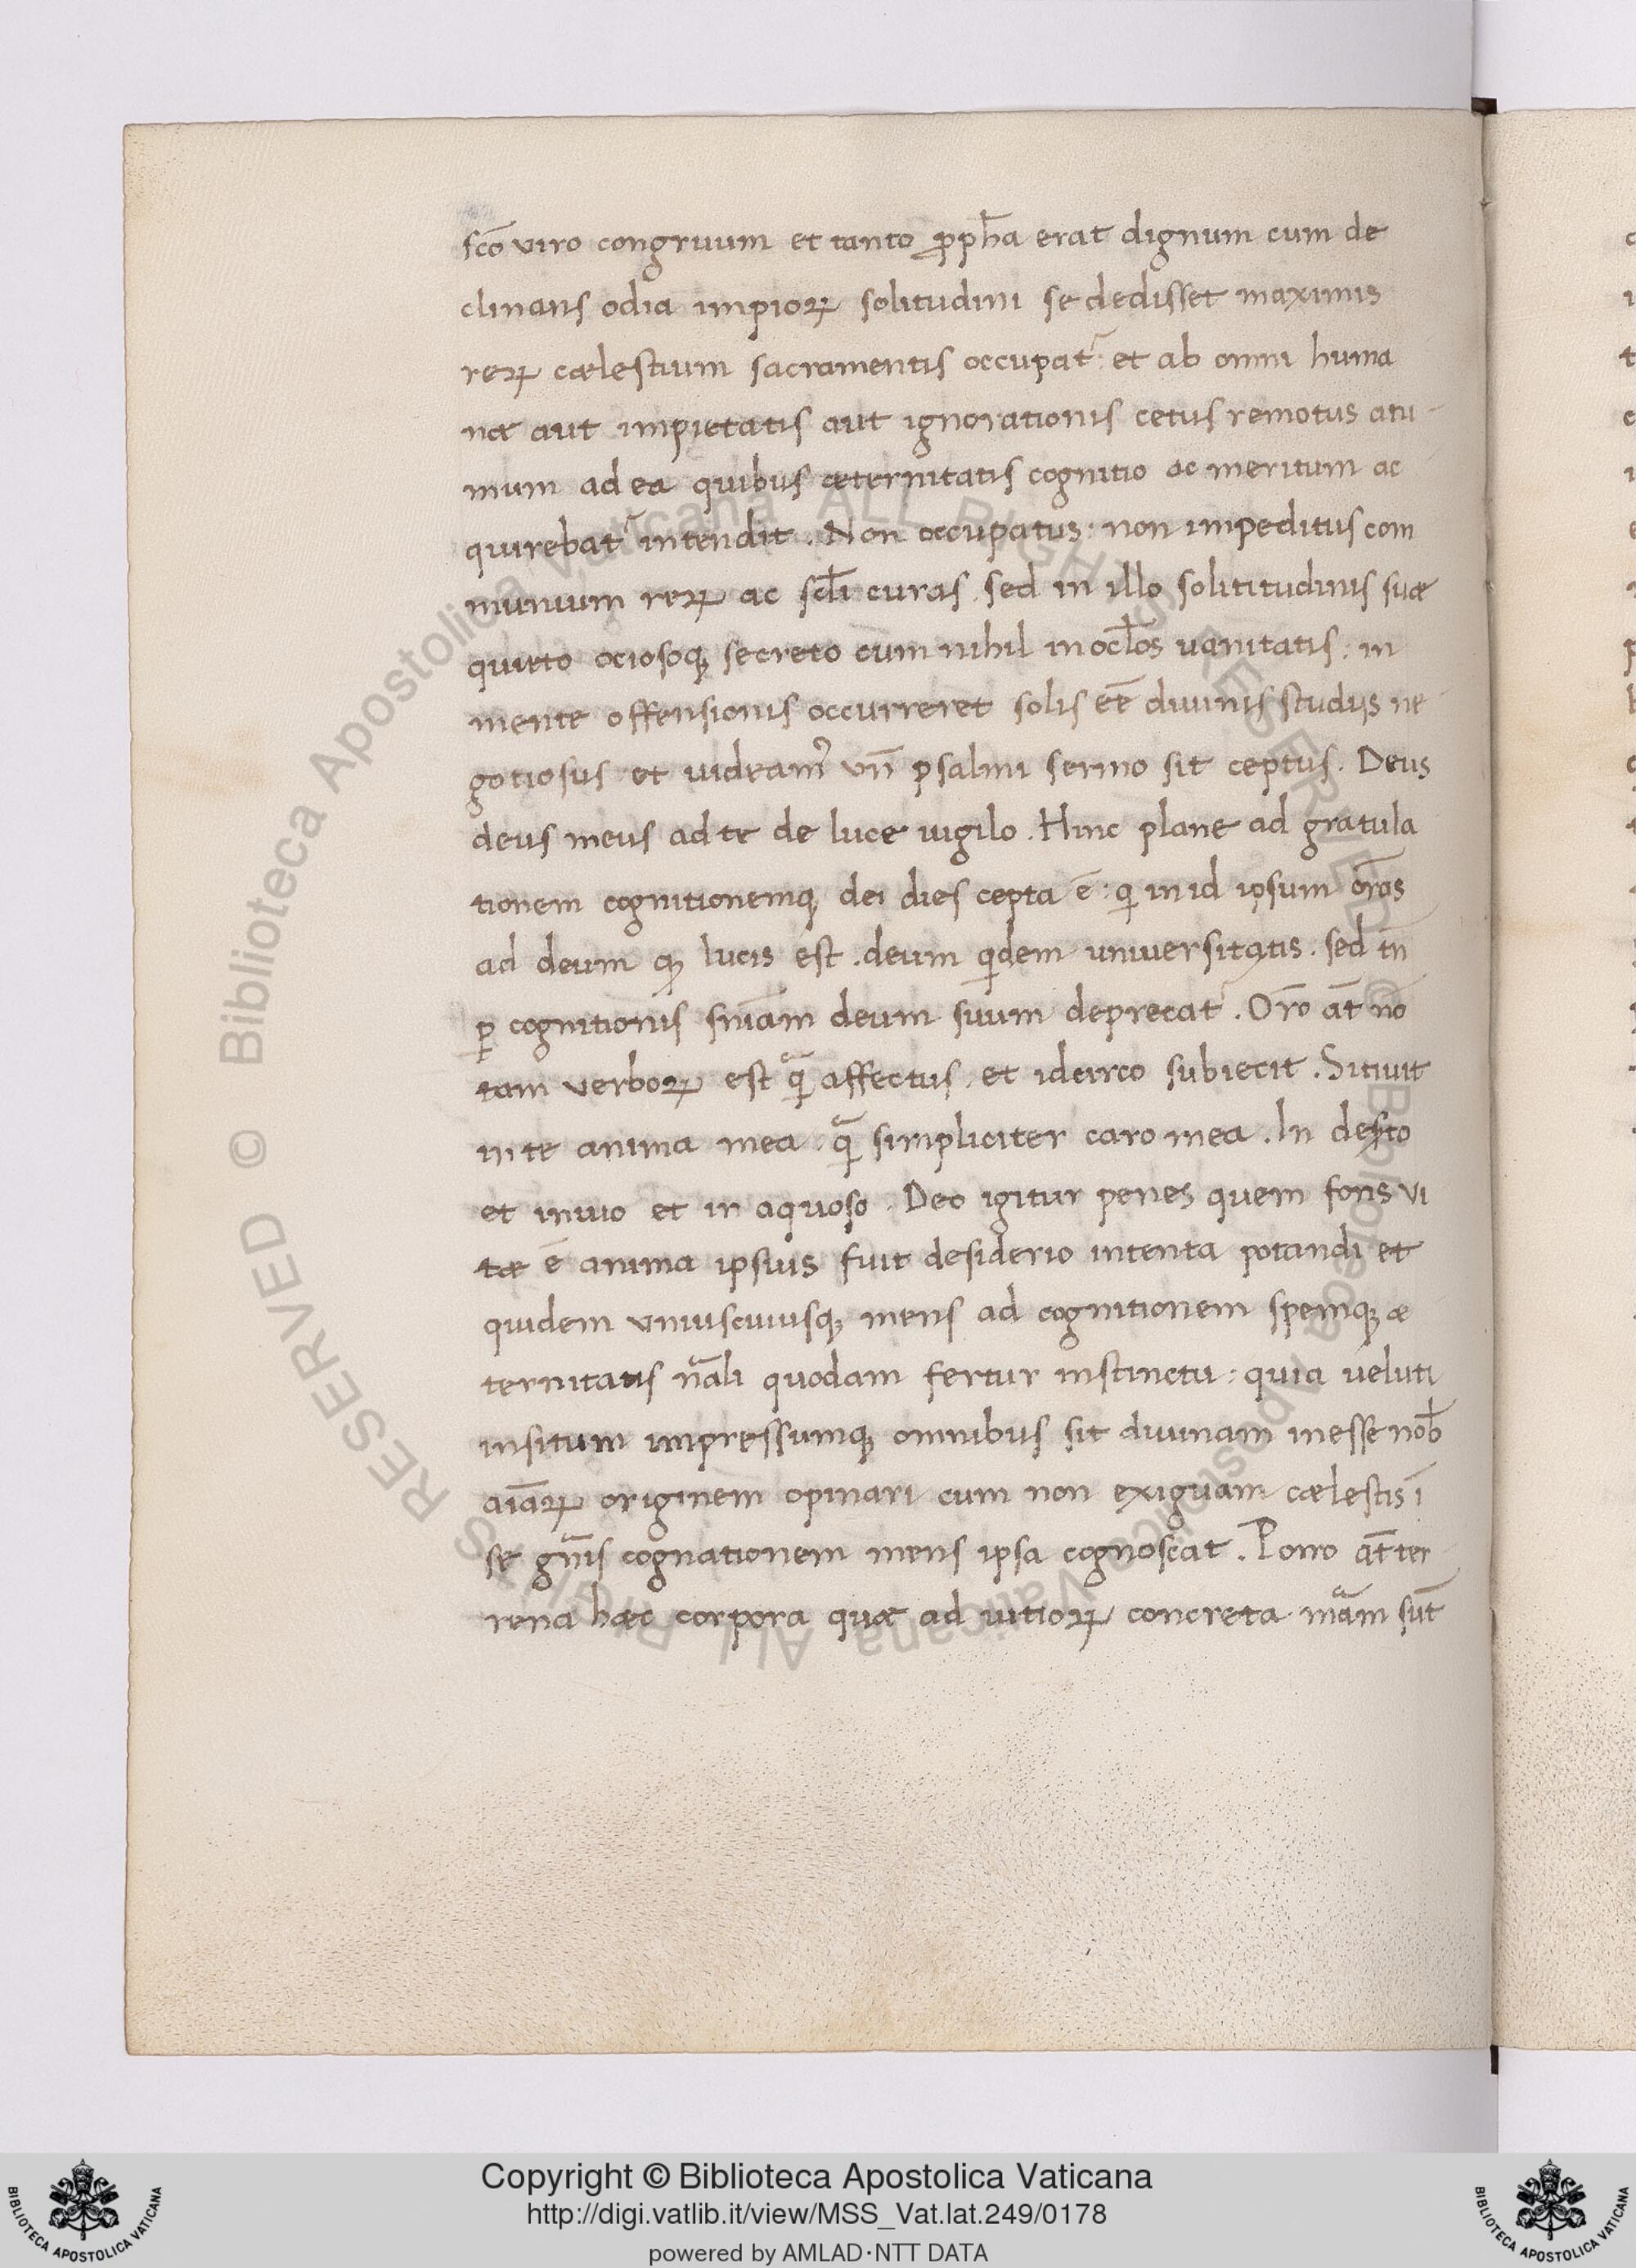 sc̄o viro congruum et tanto ꝓph̄a erat dignum cum de
clinans odia impioꝝ solitudini se dedisset maximis
reꝝ cælestium sacramentis occupat᷑: et ab omni huma
næ aut impietatis aut ignorationis cetus remotus ani-
mum ad ea quibus æternitatis cognitio ac meritum ac
quirebat᷑ intendit. Non occupatus: non impeditus com
munium reꝝ ac scl̄i curas. sed in illo solititudinis suæ
quieto ociosoqꝫ secreto cum nihil in ocl̄os uanitatis: in
mente offensionis occurreret solis eē diuinis studijs ne
gotiosus et uideamꝰ vn̄ psalmi sermo sit ceptus. Deus
deus meus ad te de luce uigilo. Hinc plane ad gratula
tionem cognitionemqꝫ dei dies cepta ē: qi in id ipsum orās
ad deum qꝫ lucis est. deum qidem uniuersitatis. sed tn̄
ꝑ cognitionis sniām deum suum deprecat᷑. Orō at̄ nō
tam verboꝝ est qͣ̄ affectus. et idcirco subiecit. Sitiuit
in te anima mea. qͣ̄ simpliciter caro mea. In desꝭto
et inuio et in aquoso. Deo igitur penes quem fons vi
tæ ē anima ipsius fuit desiderio intenta potandi et
quidem vniuscuiusqꝫ mens ad cognitionem spemqꝫ æ
ternitatis nāli quodam fertur instinctu: quia veluti
insitum impressumqꝫ omnibus sit diuinam inesse nob̄
aīaꝝ originem opinari cum non exiguam cælestis ī
se gn̄is cognationem mens ipsa cognoscat. Porro at̄ ter
rena hæc corpora quæ ad uitioꝝ concreta mām sūt
Copyright © Biblioteca Apostolica Vaticana
http://digi.vatlib.it/view/MSS_Vat.lat.249/0178
powered by AMLAD·NTT DATA
BIBLIOTECA APOSTOLICA VATICANA
BIBLIOTECA APOSTOLICA VATICANA
© Biblioteca Apostolica Vaticana ALL RIGHTS RESERVED © Biblioteca Apostolica Vaticana ALL RIGHTS RESERVED